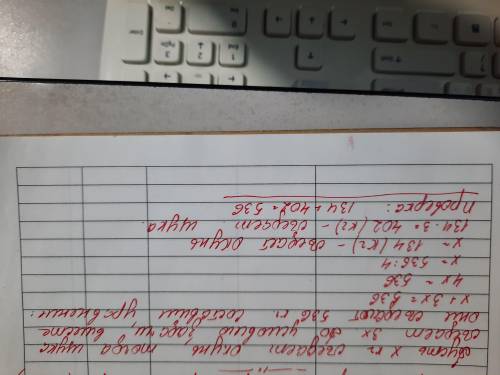 Пусть x г съедает окунь тогда щука
съедает 3x по условию задачи, вместе
они съедают 536 г. составим уравнение:
x + 3x = 536
4x = 536
x = 536 : 4
x = 134 (кг) - съедает окунь
134 · 3 = 402 (кг) - съедает щука.
Проверка: 134 + 402 = 536